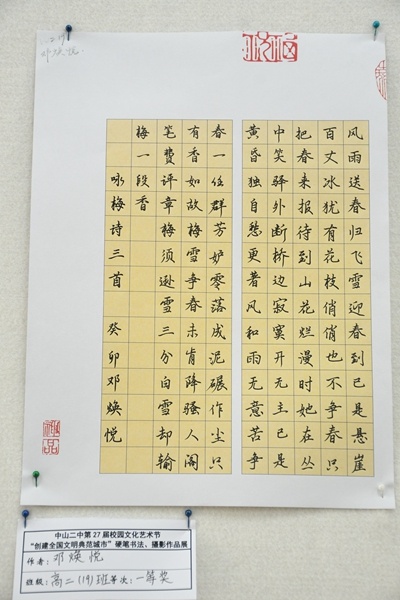 邓焕悦
风雨送春归飞雪迎春到已是悬崖
百丈冰犹有花枝俏俏也不争春只
把春来报待到山花烂漫时她在丛
中笑驿外断桥边寂寞开无主已是
黄昏独自愁更着风和雨无意苦争
春一任群芳妒零落成泥碾作尘只
有香如故梅雪争春未肯降骚人阁
笔费评章梅须逊雪三分白雪却输
梅一段香
咏梅诗三首 癸卯邓焕悦
中山二中第27届校园文化艺术节
“创建全国文明典范城市”硬笔书法、摄影作品展
作者：邓焕悦
班级：高二（19）班等次：一等奖